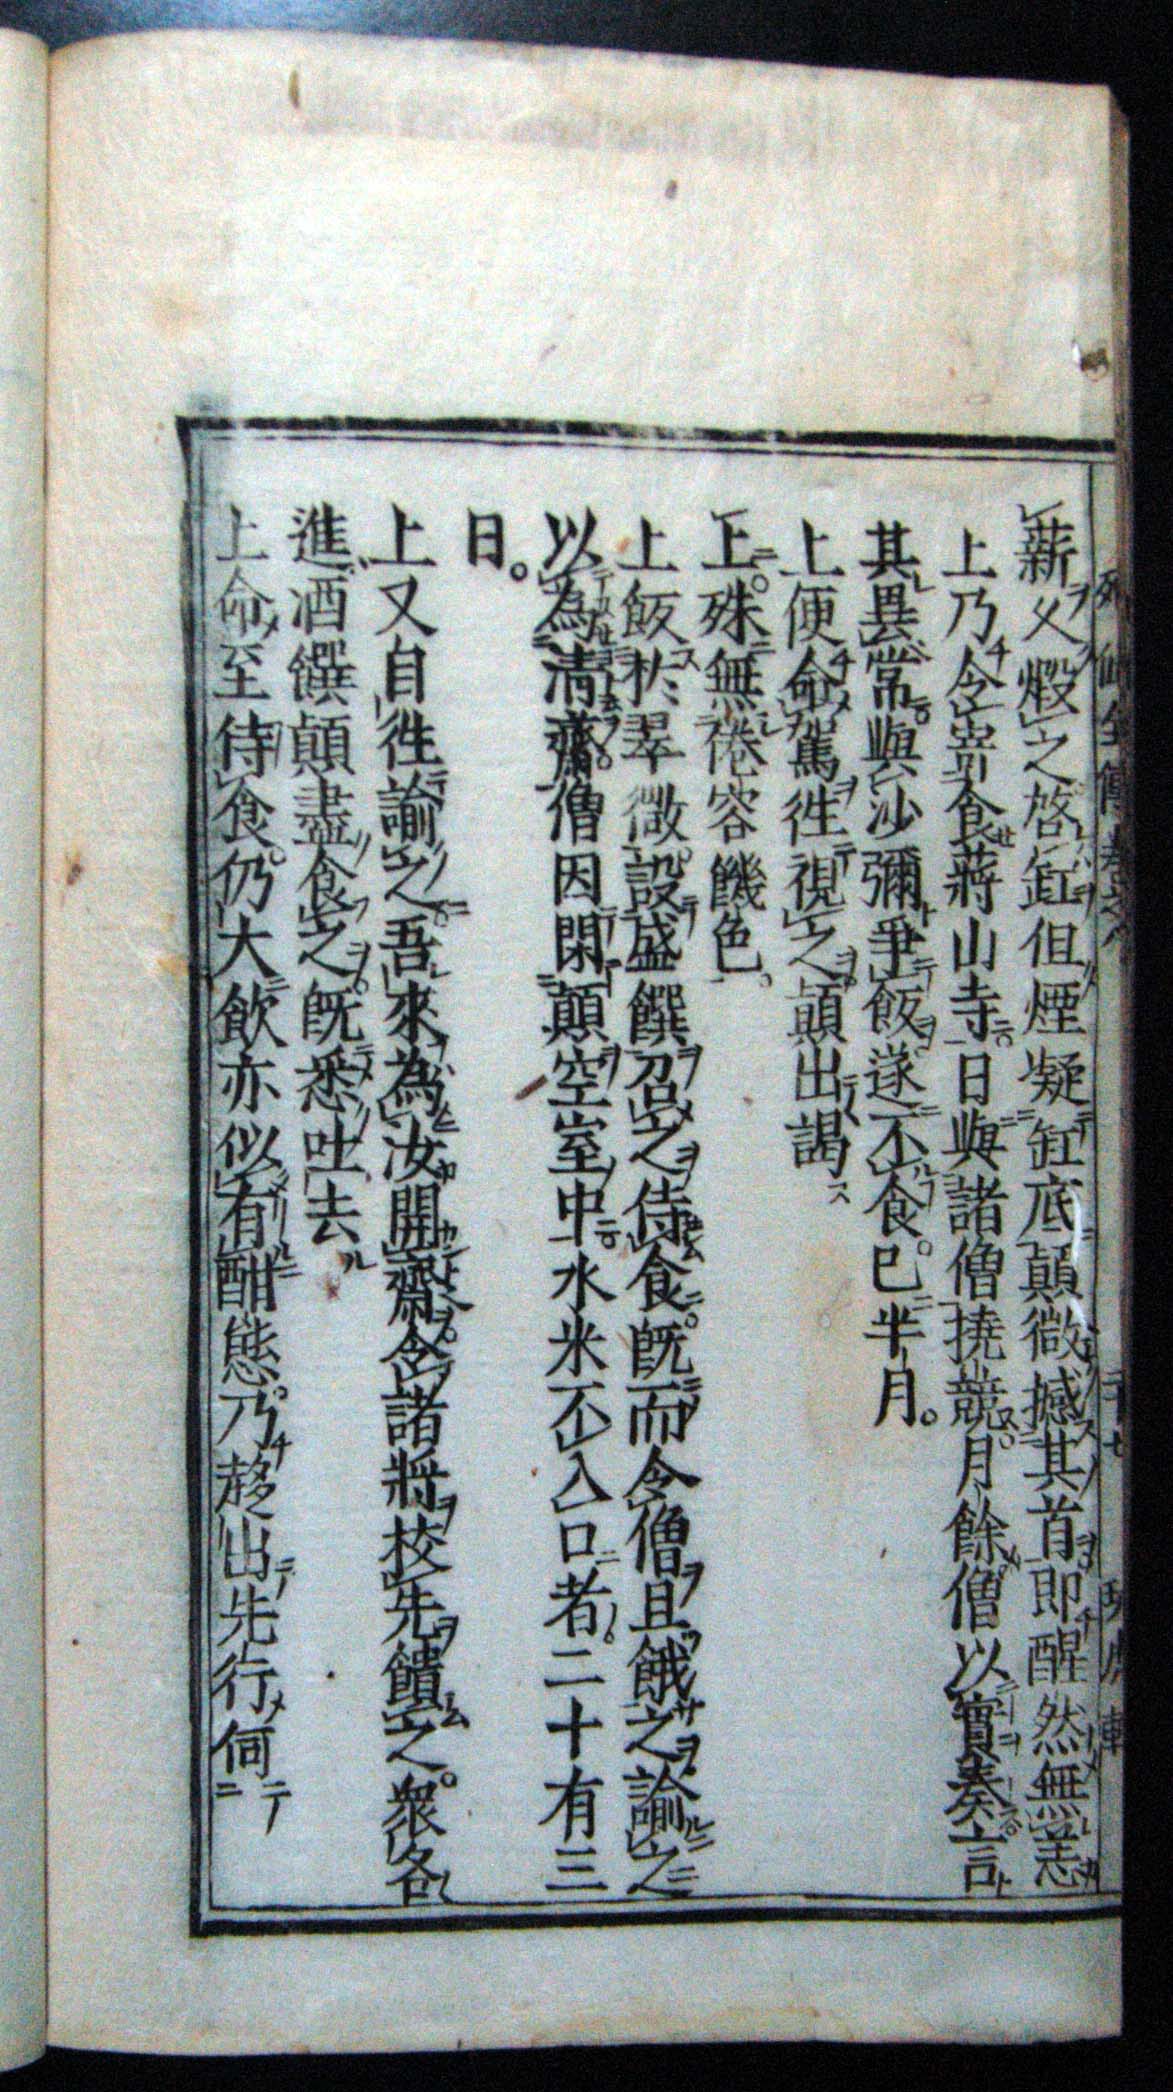 薪又煅之啓缸但煙凝缸底顚微撼其首即醒然無恙
上乃令寄食蔣山寺日與諸僧撓競月餘僧以實奏言
其異常與沙彌爭飯遂不食已半月。
上便命駕徃視之顚出謁
上殊無倦容饑色。
上飯於翠微設盛饌召之侍食既而令僧且餓之諭之
以為清齋僧因閉顚空室中水米不入口者二十有三
日。
上又自徃諭之吾來為汝開齋令諸將校先饋之。衆各
進酒饌顚盡食之既悉吐去
上命至侍食仍大飲亦似有酣態。乃趍出先行伺